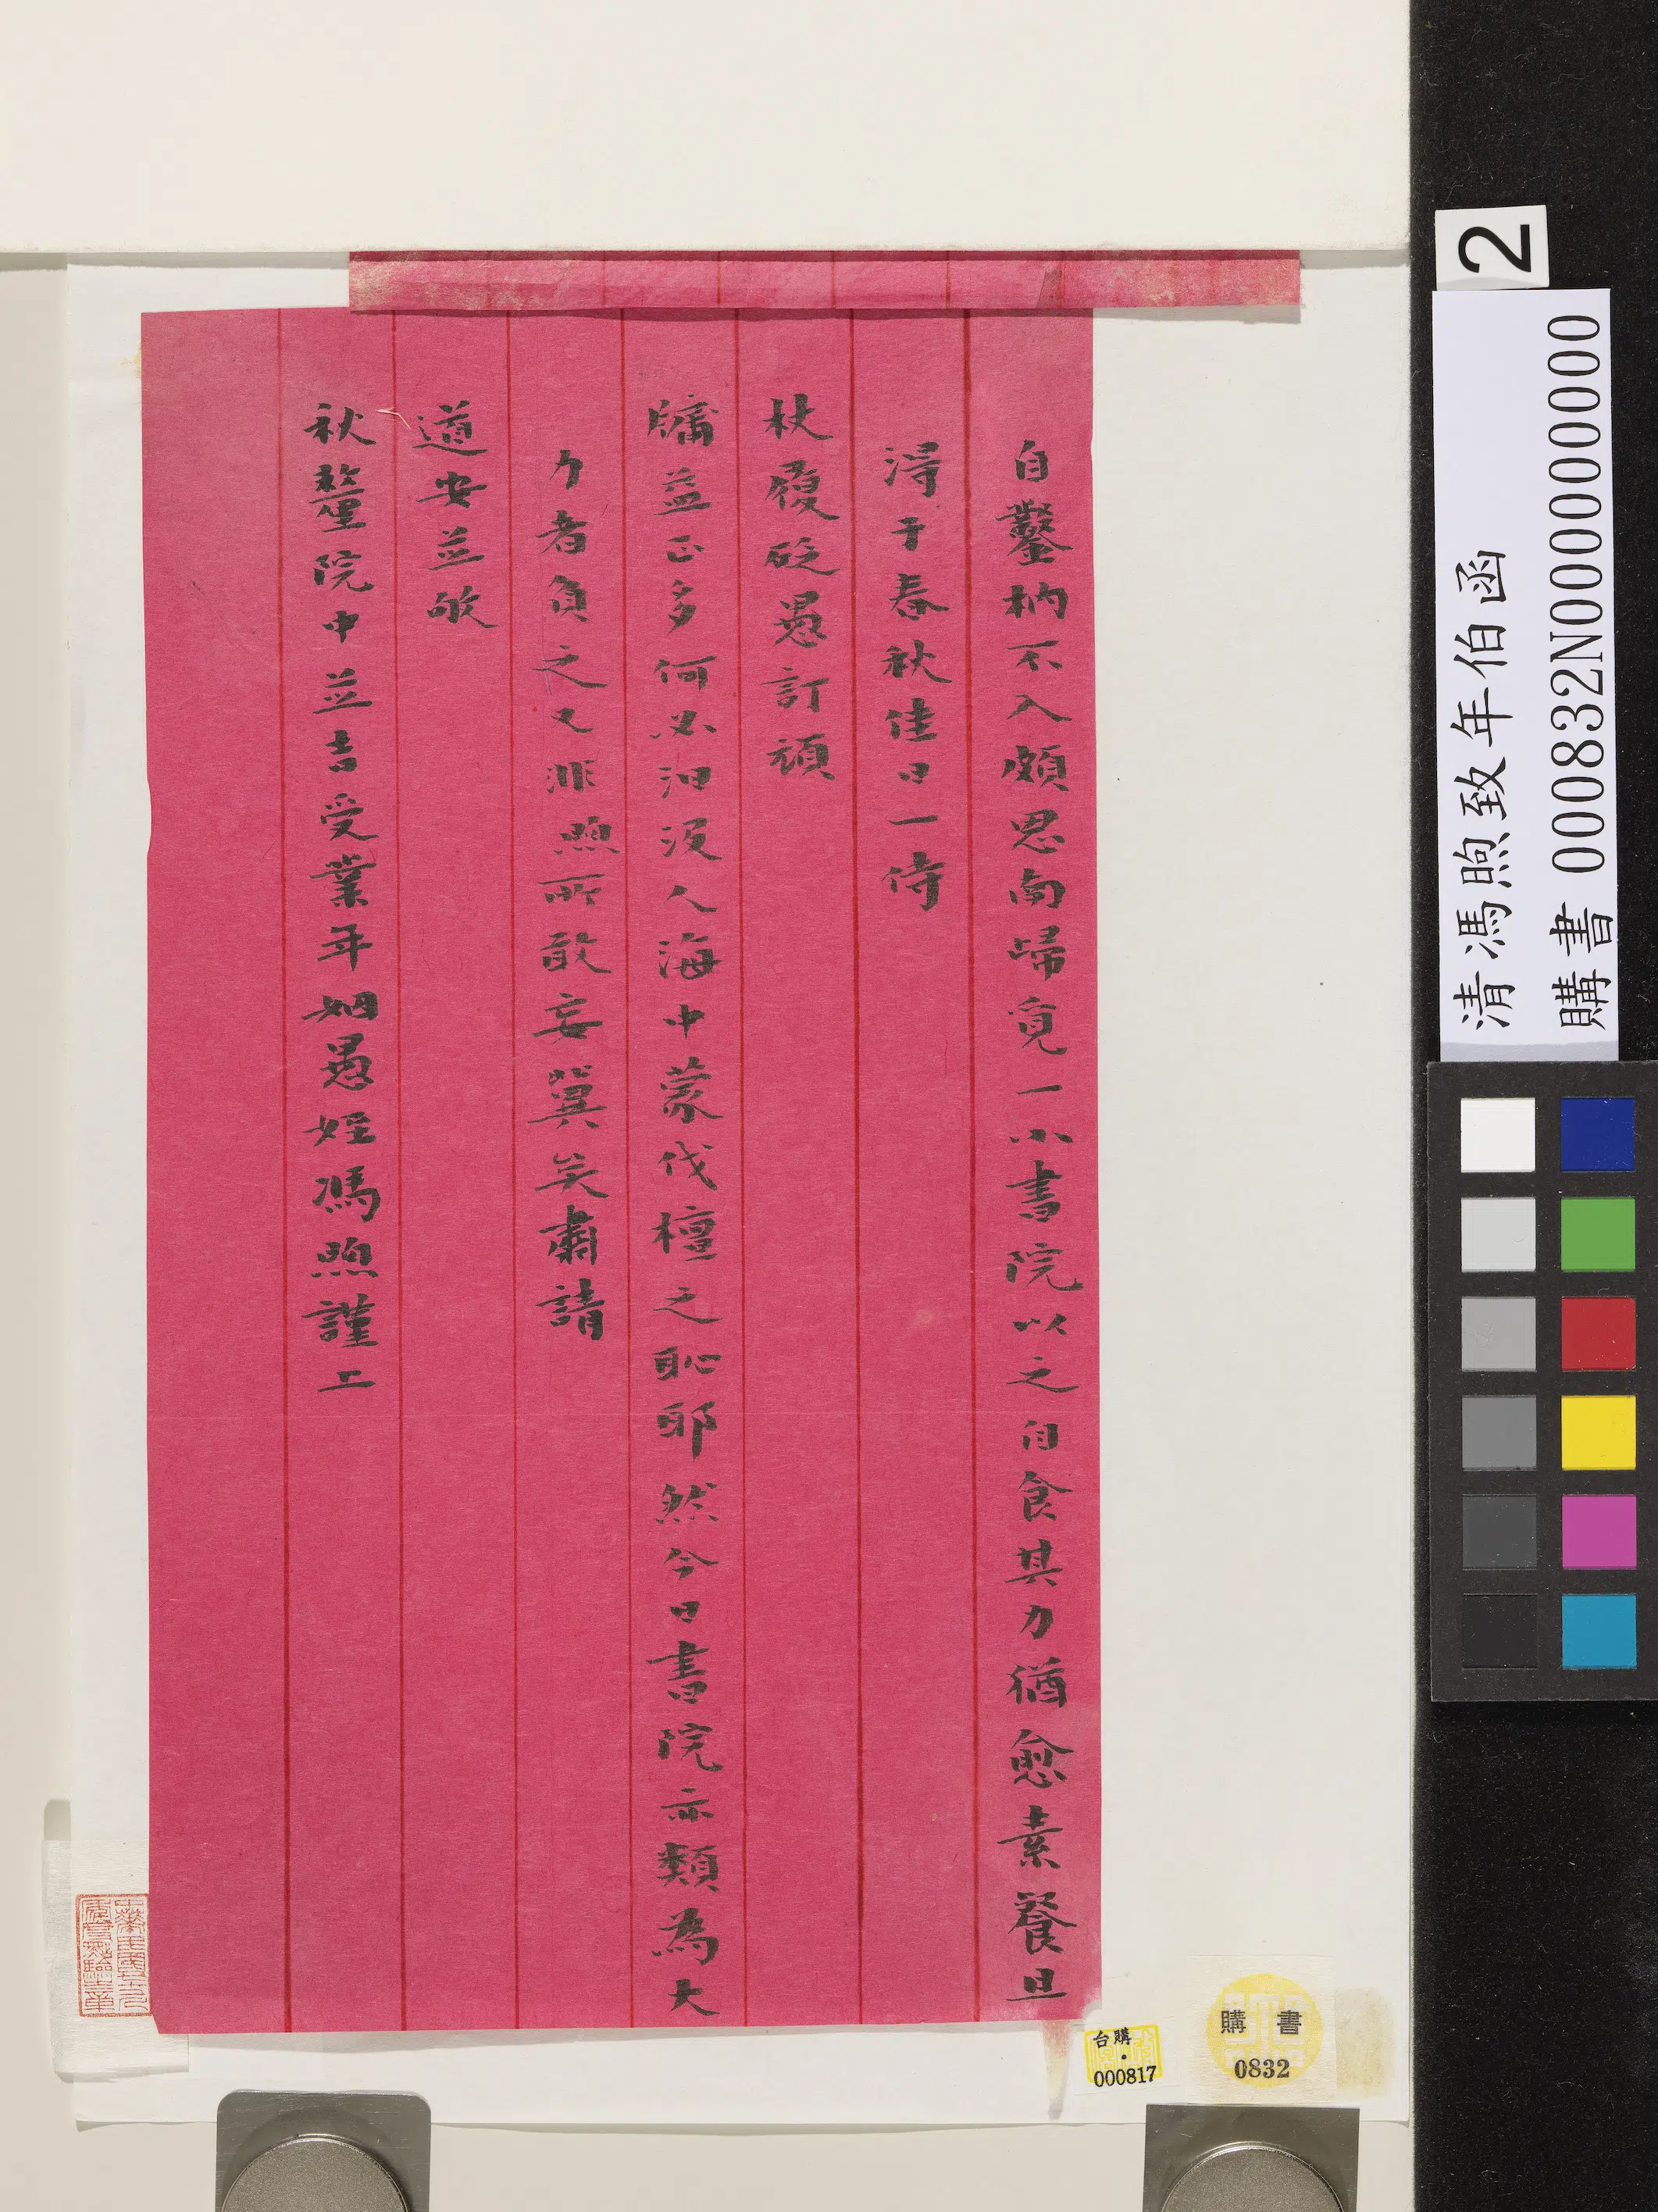 自鑿枘不入頗思南歸覓一小書院以之自食其力猶愈素餐且
淂于春秋佳日一侍
杖履砭愚訂頑
牖益正多何必汩没人海中蒙伐檀之恥耶然今日書院亦類為大
力者負之又非煦所敢妄冀矣肅請
道安並敂
秋釐院中並吉受業年姻愚姪馮煦謹上
2
清馮煦致年伯函
購書 000832N000000000
台購
000817
購書
0832